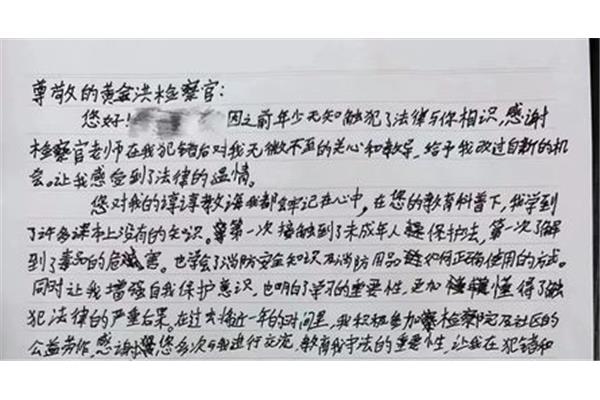 尊敬的黄金洪检察官：
您好！因之前年少无知触犯了法律与你相识，感谢
检察官老师在我犯错后对我无微不至的关心和教导，给予我改过自新的机
会。让我感受到了法律的温情。
您对我的谆谆教诲我都牢记在心中，在您的教育科普下，我学到
了许多课本上没有的知识。第一次接触到了未成年人保护法，第一次了解
到了毒品的危害。也学会了消防安全知识及消防用品如何正确使用的方式。
同时让我增强自我保护意识，也明白了学习的重要性，更加懂得了触
犯法律的严重后果。在过去将近一年的时间里，我积极参加检察院及社区的
公益劳作，感谢您多次与我进行交流，教育我守法的重要性，让我在犯错和